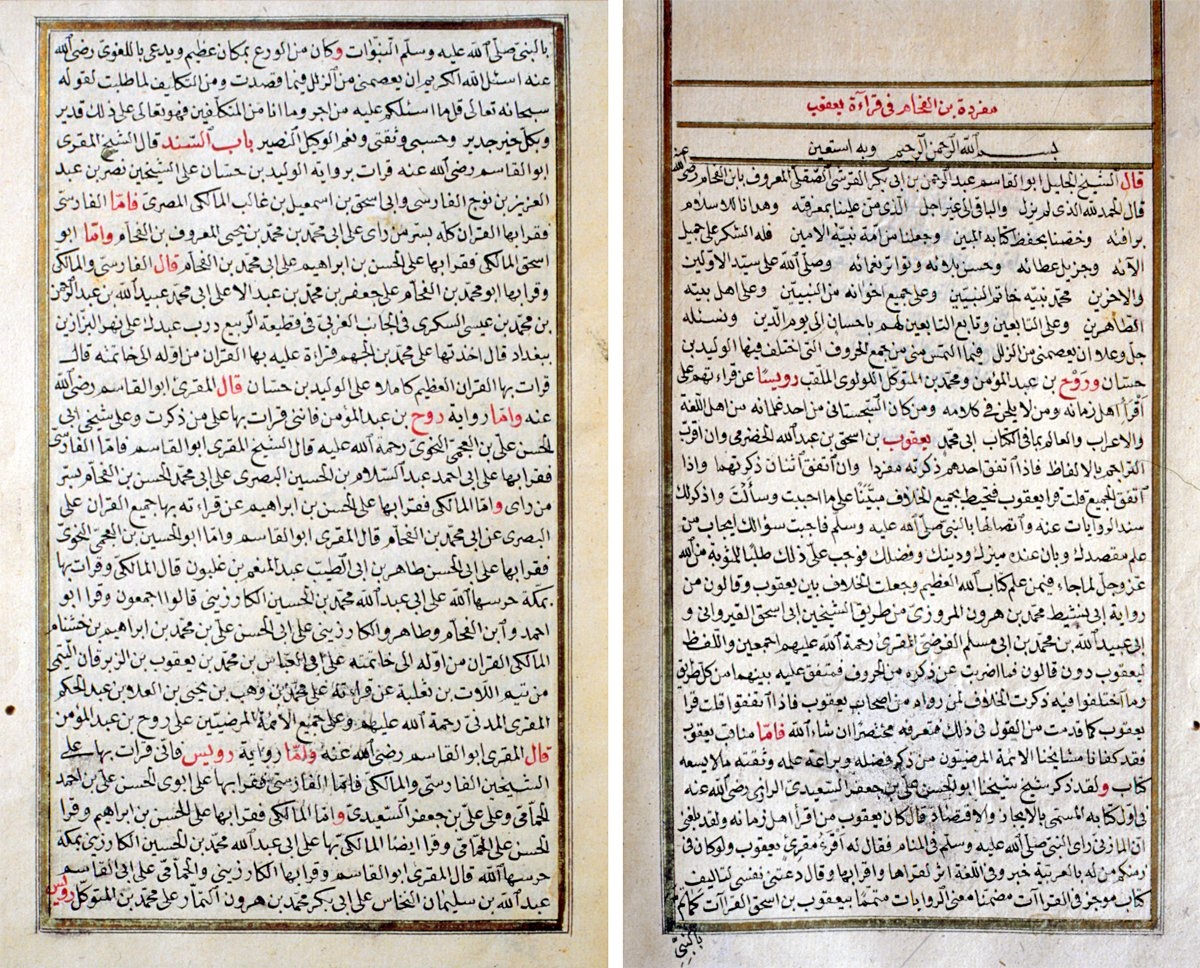 مفردة بن الفخام في قراءة يعقوب
بسم الله الرحمن الرحيم وبه استعين
قال الشيخ الجليل ابو القاسم عبد الرحمن بن ابي بكر القرشي الصقلي المعروف بابن الفحام رضي الله عنه
قال الحمد لله الذي لم يزل والباقي الى غير اجل الذي من علينا بمعرفته وهدانا للاسلام
برافته وخصنا بحفظ كتابه المبين وجعلنا من امة نبيه الامين فله الشكر على جميل
الآئه وجزيل عطائه وحسن بلائه وتواتر نعمائه وصلى الله على سيد الاولين
والاخرين محمد نبيه خاتم النبيين وعلى جميع اخوانه من النبيين وعلى اهل بيته
الطاهرين وعلى التابعين وتابع التابعين لهم باحسان الى يوم الدين ونسئله
جل وعلا ان يعصمني من الزلل فيما التمس مني من جمع الحروف التي اختلف فيها الوليد بن
حسان وروح بن عبد المؤمن ومحمد بن المتوكل اللولوي الملقب رويسا عن قراءتهم على
اقرأ اهل زمانه ومن لا يلحن في كلامه ومن كان السجستاني من احد غلمانه من اهل اللغة
والاعراب والعالم بما في الكتاب ابي محمد يعقوب بن اسحق بن عبد الله الحضرمي وان اقرب
التراجم بالالفاظ فاذا اتفق احدهم ذكرته مفردا وان اتفق اثنان ذكرتهما واذا
اتفق الجميع قلت قرا يعقوب فتحيط بجميع الخلاف مبينا على ما احببت وسألت واذكر لك
سند الروايات عنه واتصالها بالنبي صلى الله عليه وسلم فاجبت سؤالك ايجاب من
علم مقصدك وبان عنده ميزك ودينك وفضلك فوجب علي ذلك طلبا للمثوبة من الله
عز وجل لما جاء فيمن علم كتاب الله العظيم وجعلت الخلاف بين يعقوب وقالون من
رواية ابي نشيط محمد بن هرون المروزي من طريق الشيخين ابي اسحق القيرواني و
ابي عبيد الله بن محمد بن ابي مسلم الفرضي المقرئ رحمة الله عليهم اجمعين واللفظ
ليعقوب دون قالون فما اضربت عن ذكره من الحروف فمتفق عليه بينهما من كل طريق
وما اختلفوا فيه ذكرت الخلاف لمن رواه من اصحاب يعقوب فاذا اتفقوا قلت قرا
يعقوب كما قدمت من القول في ذلك فتعرفه مختصرا ان شاء الله فاما مناقب يعقوب
فقد كفانا مشايخنا الائمة المرضيون من ذكر فضله وبراعة علمه وثقته ما لا يسعه
كتاب ولقد ذكر شيخ شيخنا ابو الحسن علي بن جعفر السعيدي الرازي رضي الله عنه
في اول كتابه المسمى بالايجاز والاقتصاد قال كان يعقوب من اقرأ اهل زمانه ولقد بلغني
ان المازني راى النبي صلى الله عليه وسلم في المنام فقال له أقرئ مقرئ يعقوب ولو كان في
زمنكم من له بالعربية خبر وفي اللغة اثر لقراها واقرا بها وقال دعتني نفسي لتاليف
كتاب موجز في القراآت مضمنا معنى الروايات متمما بيعقوب بن اسحق القراآت كما تم
بالنبي
بالنبي صلى الله عليه وسلم النبوات وكان من الورع بمكان عظيم ويدعى باللغوي رضي الله
عنه اسئل الله الكريم ان يعصمني من الزلل فيما قصدت ومن التكليف لما طلبت لقوله
سبحانه تعالى قل ما اسئلكم عليه من اجر وما انا من المتكلفين فهو تعالى على ذلك قدير
وبكل خير جدير وحسبي وثقتي ونعم الوكيل النصير باب السند قال الشيخ المقري
ابو القاسم رضي الله عنه قرات برواية الوليد بن حسان على الشيخين نصر بن عبد
العزيز بن نوح الفارسي وابي اسحق بن اسمعيل بن غالب المالكي المصري فاما الفارسي
فقرا بها القران كله بسر من راى على ابي محمد بن محمد بن يحيى المعروف بن الفحام واما ابو
اسحق المالكي فقرا بها على الحسن بن ابراهيم على ابي محمد بن الفحام قال الفارسي والمالكي
وقرا بها ابو محمد بن الفحام على جعفر بن محمد بن عبد الاعلى ابي محمد عبيد الله بن عبد الرحمن
بن محمد بن عيسى السكري في الجانب الغربي في قطيعة الربيع درب عبدك على نهر البزازين
ببغداد قال اخذتها على محمد بن الجهم قراءة عليه بها القران من اوله الى خاتمته قال
قرات بها القران العظيم كاملا وعلى الوليد بن حسان قال المقرئ ابو القاسم رضي الله
عنه واما رواية روح بن عبد المؤمن فانني قرات بها على من ذكرت وعلى شيخي ابي
الحسن علي بن العجمي النحوي رحمة الله عليه قال الشيخ المقرى ابو القاسم فاما الفارسي
فقرا بها على ابي احمد عبد السلام بن الحسين البصرى على ابي محمد الحسن بن الفحام بسر
من راى واما المالكي فقرا بها على الحسن بن ابراهيم عن قراءته بها جميع القران على
البصرى عن ابي محمد بن الفحام قال المقرى ابو القاسم واما ابو الحسين بن العجمي النحوي
فقرا بها على ابي الحسن طاهر بن ابي الطيب عبد المنعم بن غلبون قال المالكي وقرات بها
بمكة حرسها الله على ابي عبد الله محمد بن الحسين الكارزيني قالوا اجمعون وقرا ابو
احمد وابن الفحام وطاهر والكارزيني على ابي الحسن علي بن محمد بن ابراهيم بن خشنام
المالكي القران من اوله الى خاتمته على ابي العباس بن محمد بن يعقوب بن الزبرقان التيمي
من تيم اللات بن ثعلبة عن قراءته على محمد بن وهب بن يحيى بن العدو بن عبد الحكم
المقرى المدني رحمة الله عليهم وعلى جميع الائمة المرضيين على روح بن عبد المؤمن
قال المقرى ابو القاسم رضي الله عنه واما رواية رويس فاني قرات بها على
الشيخين الفارسي والمالكي فاما الفارسي فقرا بها على ابوى الحسن علي بن احمد
الحمامي وعلى علي بن جعفر السعيدي واما المالكي فقرا بها على الحسن بن ابراهيم وقرا
الحسن على الحمامي وقرا ايضا المالكي بها على ابي عبد الله محمد بن الحسين الكارزي بمكه
حرسها الله قال المقرى ابو القاسم وقرا بها الكارزيني والحمامي على ابي القاسم
عبد الله بن سليمان النخاس على ابي بكر محمد بن هرون التمار على محمد بن المتوكل رويس